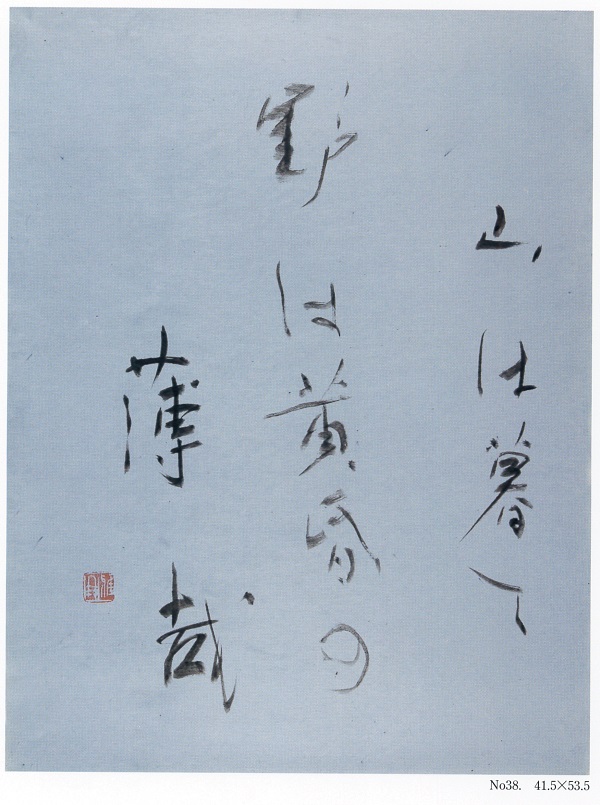 山は暮て
野は黄昏の
薄哉
No38. 41.5×53.5